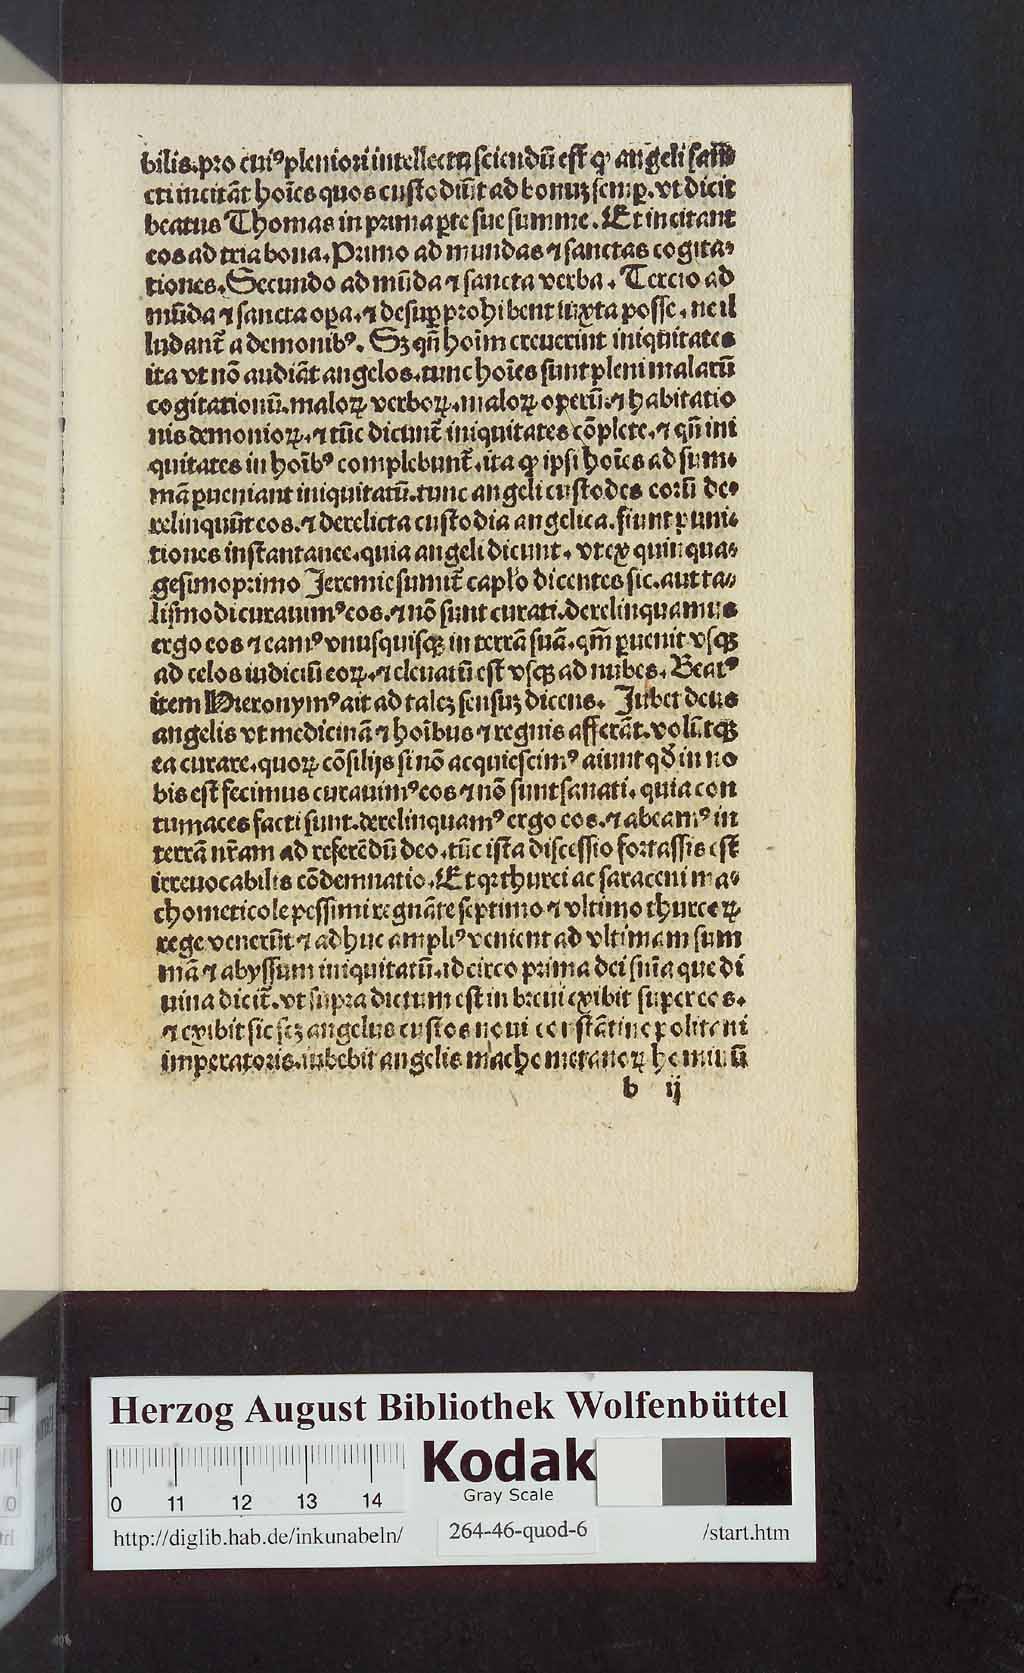 bilis.pro cuiꝰ pleniori intellectu sciendū est ꝙ angeli san
cti incitāt hoīes quos custodiūt ad bonuꝫ semꝑ. vt dicit
beatus Thomas in prima ꝑte sue summe. Et incitant
eos ad tria bona. Primo ad mundas ⁊ sanctas cogita⸗
tiones. Secundo ad mūda ⁊ sancta verba. Tercio ad
mūda ⁊ sancta oꝑa. ⁊ desuꝑ prohibent iuxta posse. ne il
ludant᷑ a demonibꝰ. Sꝫ qn̄ hoim creuerint iniquitates
ita vt nō audiāt angelos. tunc hoīes sunt pleni malarū
cogitationū. maloꝝ verboꝝ. maloꝝ operū. ⁊ habitatio
nis demonioꝝ. ⁊ tūc dicunt᷑ iniquitates cōplete. ⁊ qn̄ ini
quitates in hoībꝰ complebunt᷑. ita ꝙ ipsi hoīes ad sum⸗
mā ꝑueniant iniquitatū. tunc angeli custodes eorū de⸗
relinquūt eos. ⁊ derelicta custodia angelica. fiunt puni⸗
tiones instantanee. quia angeli dicunt. vt ex quinqua⸗
gesimoprimo Jeremie sumit᷑ capl'o dicentes sic. aut ta⸗
lismodi curauimꝰ eos. ⁊ nō sunt curati. derelinquamus
ergo eos ⁊ eamꝰ vnusquisqꝫ in terrā suā. qm̄ ꝑuenit vsqꝫ
ad celos iudiciū eoꝝ. ⁊ eleuatū est vsqꝫ ad nubes. Beatꝰ
item Hieronymꝰ ait ad taleꝫ sensuꝫ dicens. Jubet deus
angelis vt medicinā ⁊ hoībus ⁊ regnis afferāt. volūtqꝫ
ea curare. quoꝝ cōsilijs si nō acquiescimꝰ aiunt qd̄ in no
bis est fecimus curauimꝰ eos ⁊ nō sunt sanati. quia con
tumaces facti sunt. derelinquamꝰ ergo eos. ⁊ abeamꝰ in
terrā nr̄am ad referēdū deo. tūc ista discessio fortassis est
irreuocabilis cōdemnatio. Et qꝛ thurci ac saraceni ma⸗
chometicole pessimi regnāte septimo ⁊ vltimo thurcoꝝ
rege venerūt ⁊ adhuc ampliꝰ venient ad vltimam sum
mā ⁊ abyssum iniquitatū. idcirco prima dei snīa que di
uina dicit᷑. vt supra dictum est in breui exibit super eos.
⁊ exibit sic scꝫ angelus custos noui constātinopolitani
imperatoris. iubebit angelis machometanoꝝ hominū
b ij
Herzog August Bibliothek Wolfenbüttel
Kodak
Gray Scale
0 11 12 13 14
http://diglib.hab.de/inkunabeln/
264-46-quod-6
/start.htm